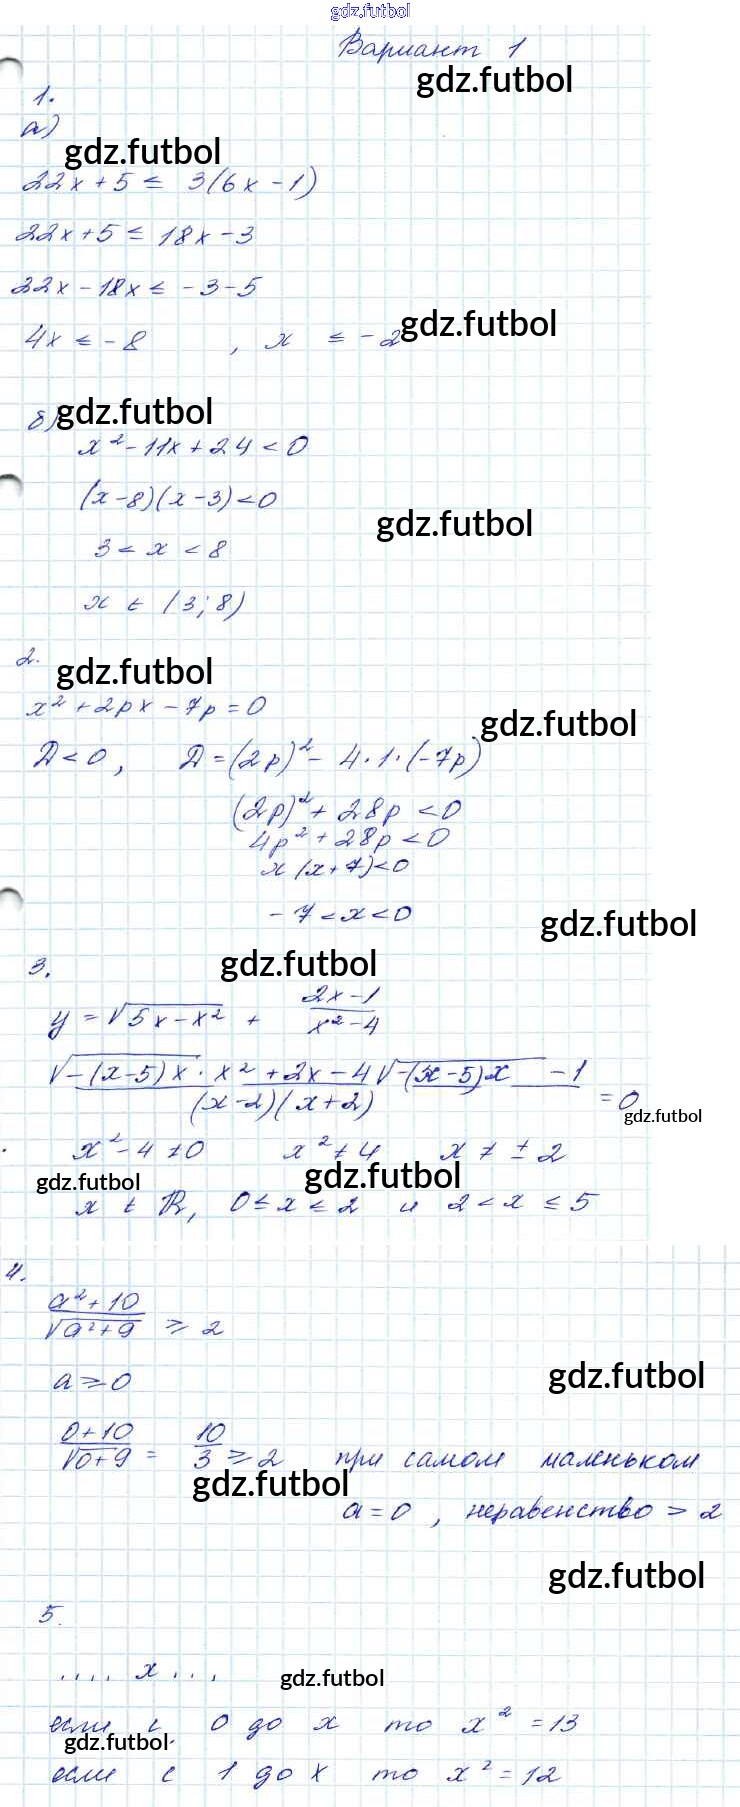 gdz.futbol
Вариант 1
gdz.futbol
1.
а)
gdz.futbol
22x + 5 ≤ 3(6x - 1)
22x + 5 ≤ 18x - 3
22x - 18x ≤ -3 - 5
4x ≤ -8 , x ≤ -2
gdz.futbol
б)
gdz.futbol
x² - 11x + 24 < 0
(x - 8)(x - 3) < 0
gdz.futbol
3 < x < 8
x ∈ (3; 8)
2.
gdz.futbol
x² + 2px - 7p = 0
gdz.futbol
D < 0, D = (2p)² - 4·1·(-7p)
(2p)² + 28p < 0
4p² + 28p < 0
x(x + 7) < 0
-7 < x < 0
gdz.futbol
3.
gdz.futbol
y = √(5x - x²) + (2x - 1)/(x² - 4)
(√(-(x-5)x) · x² + 2x - 4√(-(x-5)x) - 1)/((x-2)(x+2)) = 0
gdz.futbol
x² - 4 ≠ 0 x² ≠ 4 x ≠ ± 2
gdz.futbol
gdz.futbol
x ∈ R, 0 ≤ x ≤ 2 и 2 < x ≤ 5
4.
(a² + 10)/√(a² + 9) ≥ 2
a ≥ 0
gdz.futbol
(0 + 10)/√(0 + 9) = 10/3 ≥ 2 при самом маленьком
gdz.futbol
a = 0, неравенство > 2
gdz.futbol
5.
.... x ...
gdz.futbol
если с 0 до x то x² = 13
gdz.futbol
если с 1 до x то x² = 12